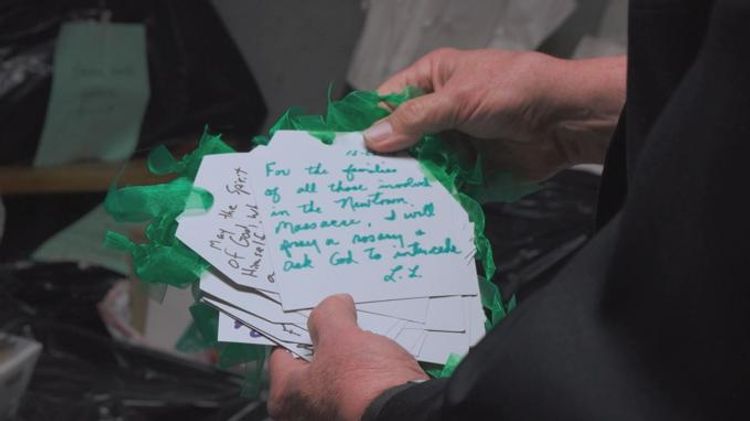 For the families
of all those involved
in the Newtown
Massacre, I will
pray a rosary &
ask God to intercede
L.L.
May the Spirit
of God, wh
Himself
a